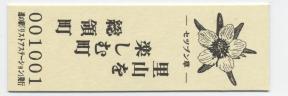 ―セツブン草―
里山を
楽しむ町
総領町
001001
道の駅リストアステーション発行